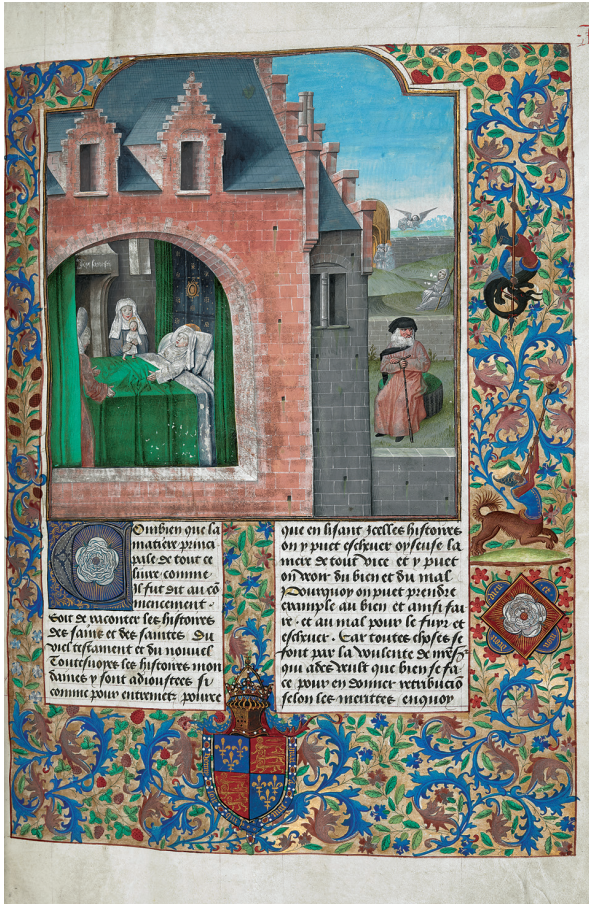 Oubien que la
matiere princi
pale de tout ce
liure comme
il fut dit au cõ
mencement ·
Soit de raconter les histoires
des sains et des saintes du
viel testament et du nouuel
Toutesuoyes les histoires mon
daines y sont adioustees si
comme pour entremetz pource
que en lisant Jcelles histoires
on y puet escheuer oyseuse la
mere de tout vice et y puet
on veoir du bien et du mal
Pourquoy on puet prendre
example au bien et ainsi fai
re · et au mal pour le fuyr et
escheuer · Car toutes choses se
font par la voulente de
qui ades veult que bien se fa
ce pour en donner retribucõ
selon les merites enquoy